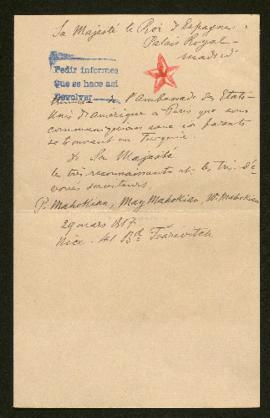 Sa Majesté le Roi d'Espagne
Palais Royal
Madrid
Pedir informes
que se hace así
Devolver
l'Ambassade des Etats
Unis d'Amérique à Paris que nous
communiquions avec nos parents
se trouvant en Turquie.
de Sa Majesté
les très reconnaissants et les très dé-
voués serviteurs.
P. Mahokian, May Mahokian, W. Mahokian
29 mars 1917
Nice. 41 Bd Tzarewitch